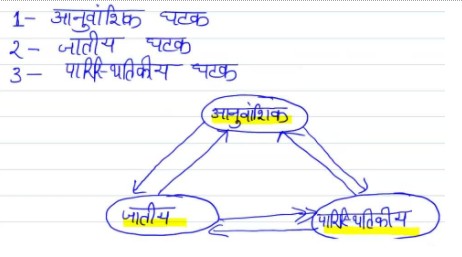 1- आनुवांशिक घटक
2- जातीय घटक
3- पारिस्थितिकीय घटक
आनुवांशिक
जातीय
पारिस्थितिकीय